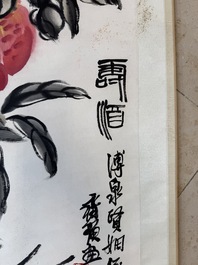 壽酒
溥泉賢姻
齊璜畫